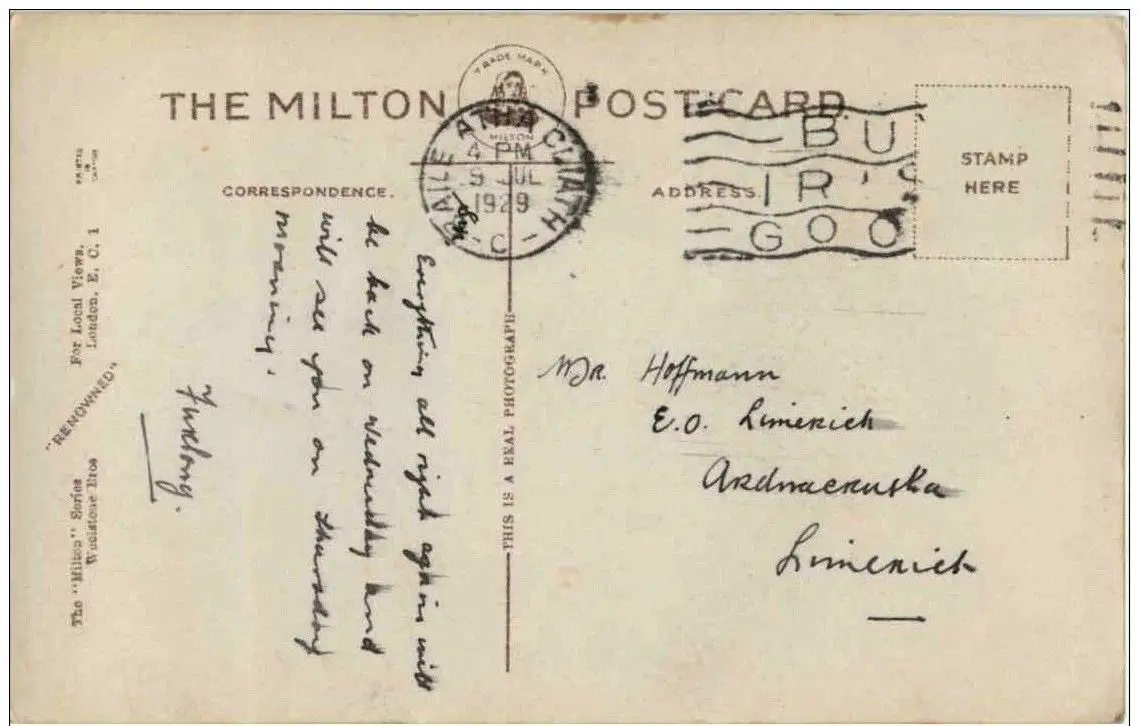 THE MILTON POST CARD
TRADE MARK
MILTON
BAILE ATHA CLIATH
4 PM
9 JUL
1929
C
BU
IR'
GOO
STAMP
HERE
CORRESPONDENCE.
ADDRESS
Everything all right again will
be back on Wednesday and
will see you on Thursday
morning.
Furlong.
THIS IS A REAL PHOTOGRAPH
Mr. Hoffmann
E.O. Limerick
Ardnacrusha
Limerick
The "Milton" Series
Woolstone Bros
"RENOWNED"
For Local Views,
London, E. C. 1
PRINTED
IN